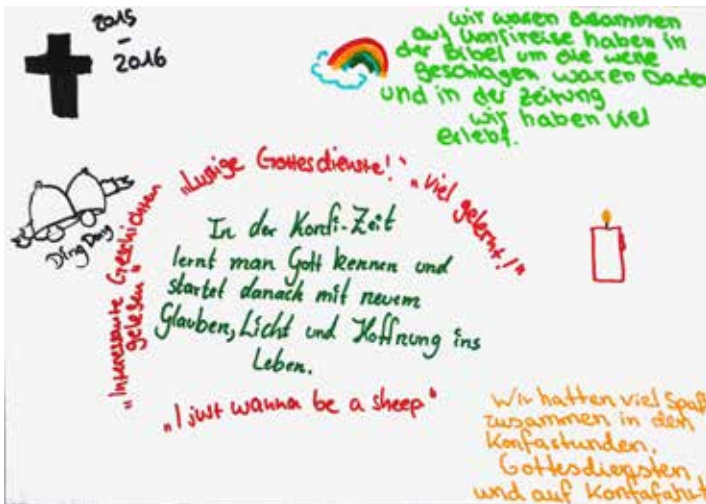 2015
-
2016
wir waren zusammen
auf Konfireise haben in
der Bibel um die wette
geschlagen waren Baden
und in der Zeitung
wir haben viel
erlebt.
"Lustige Gottesdienste!"
"viel gelernt!"
"Interessante Geschichten
gelesen"
Ding Dong
In der Konfi-Zeit
lernt man Gott kennen und
startet danach mit neuem
Glauben, Licht und Hoffnung ins
Leben.
"I just wanna be a sheep"
Wir hatten viel Spaß
zusammen in den
Konfastunden,
Gottesdiensten
und auf Konfafahrt